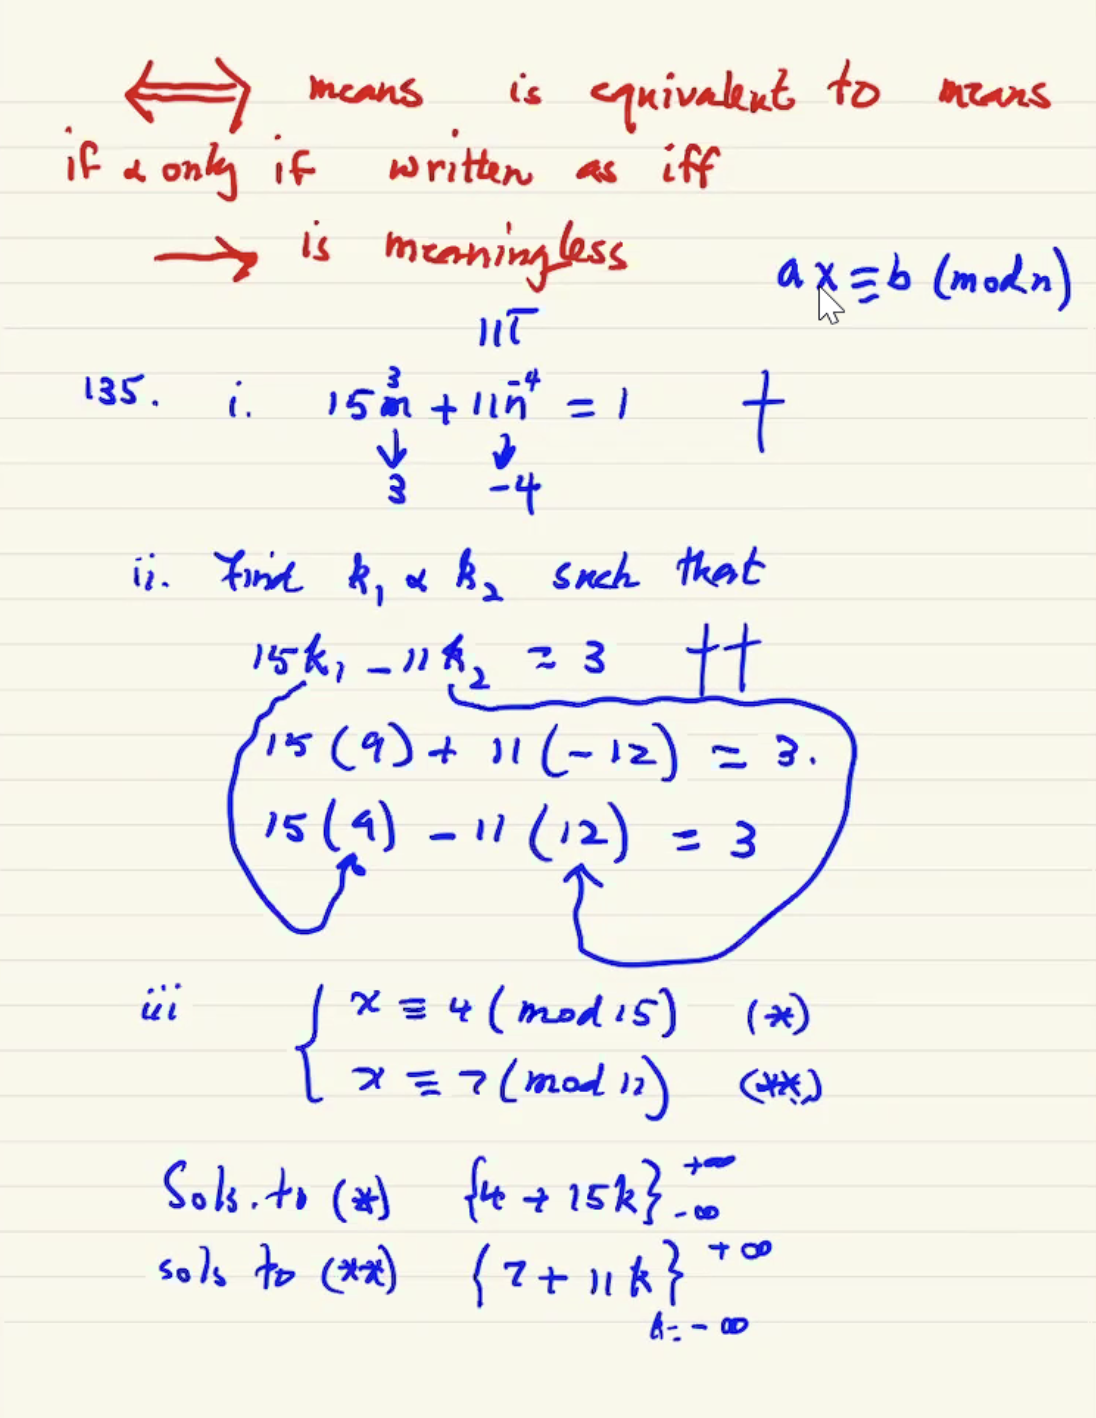 ⟺ means is equivalent to means
if & only if written as iff
→ is meaningless
ax ≡ b (mod n)
135. i. 15m + 11n = 1 †
3 -4
3 -4
ii. Find k₁ & k₂ such that
15k₁ - 11k₂ = 3 ††
15(9) + 11(-12) = 3.
15(9) - 11(12) = 3
iii { x ≡ 4 (mod 15) (*)
x ≡ 7 (mod 11) (**)
Sols. to (*) {4 + 15k} +∞ -∞
sols to (**) {7 + 11k} +∞
k=-∞